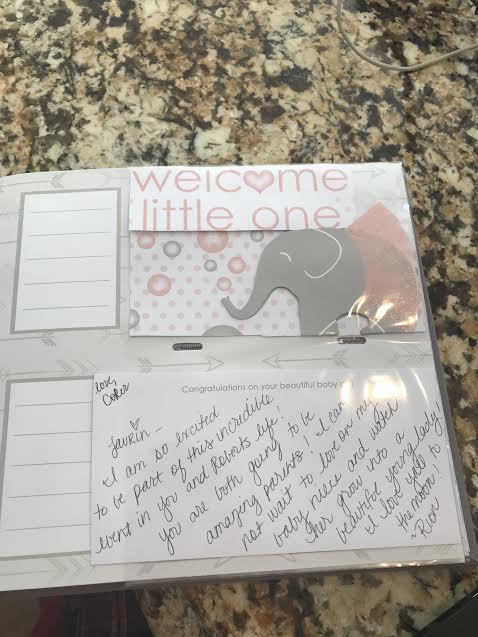 welcome
little one
love,
Congratulations on your beautiful baby
Laurin ~
I am so excited
to be part of this incredible
event in you and Roberts life!
you are both going to be
amazing parents! I can
not wait to love on my
baby niece and watch
her grow into a
beautiful young lady!
I love you to
the moon!